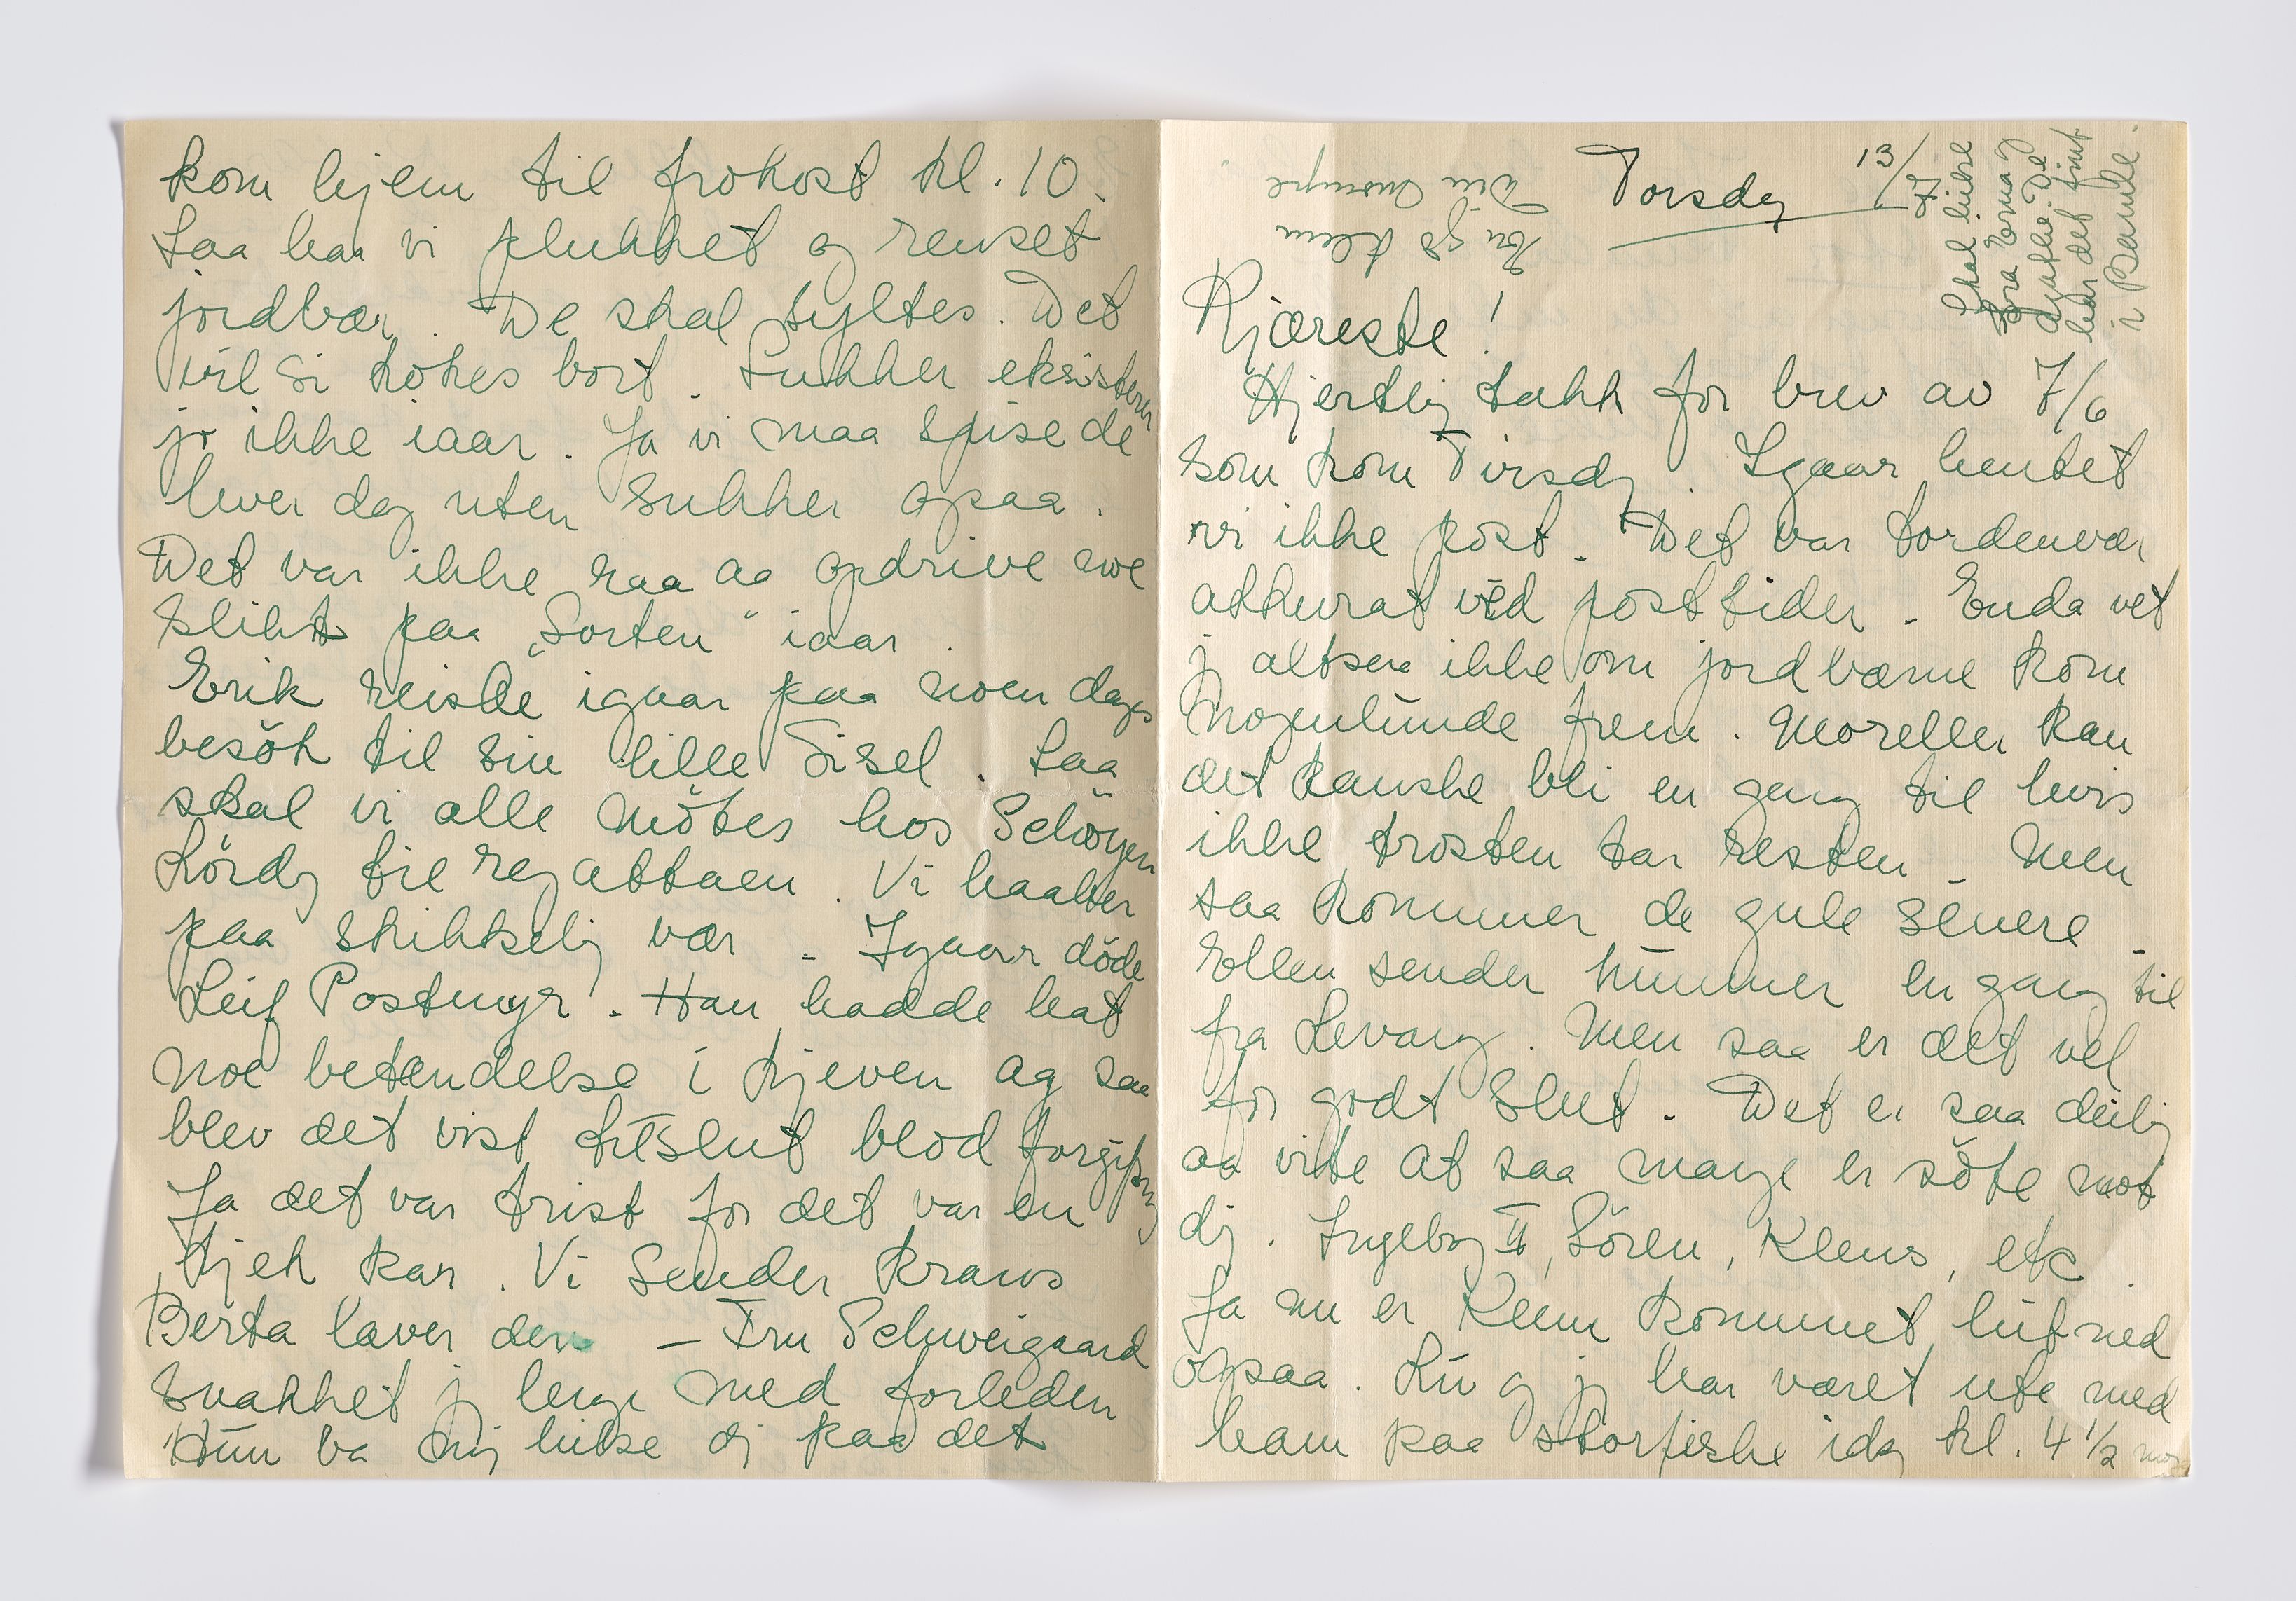 Torsdag 13/7
Kjæreste!
Hjertlig takk for brev av 7/6
som kom Tirsdg. Igaar hentet
vi ikke post. Det var tordenvær
akkurat ved posttiden. Enda vet
jg altsaa ikke om jordbærne kom
nogenlunde frem. Moreller kan
det kanske bli en gang til hvis
ikke trosten tar resten. Men
saa kommer de gule senere.
Ellen sender hummer en gang til
fra Levang. Men saa er det vel
for godt slut. Det er saa deilig
aa vite at saa mange er söte mot
dig. Ingeborg II, Sören, Klems, etc.
Ja nu er Klem kommet hit ned
ogsaa. Liv og jg har været ute med
ham paa storfiske idag kl. 4 1/2 mor
kom hjem til frokost kl. 10.
Saa har vi plukket og renset
jordbær. De skal syltes. Det
vil si kokes bort. Sukker eksisterer
jo ikke iaar. Ja vi maa spise de
hver dag uten sukker ogsaa.
Det var ikke raa aa opdrive noe
slikt paa „Sorten" iaar.
Erik reiste igaar paa noen dages
besök til sin lille Sisel. Saa
skal vi alle mötes hos Schöyen
Lördg til regattaen. Vi haaber
paa skikkelig vær. Igaar döde
Leif Postmyr. Han hadde hat
noe betændelse i kjeven og saa
blev det vist tilslut blodforgiftning
Ja det var trist for det var en
kjek kar. Vi sender krans
Berta laver den — Fru Schweigaard
snakket jg lenge med forleden
Hun ba mig hilse dig paa det
Skal hilse
fra Erna og
Agathe. De
har det fint
i Bamble.
Liv gs klem
Din Mamma